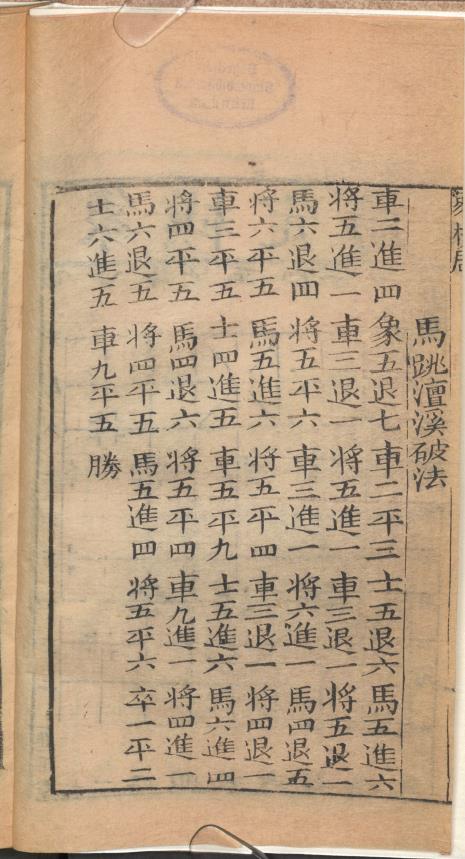 馬跳澶溪破法
車二進四 象五退七 車二平三 士五退六 馬五進六
将五進一 車三退一 将五進一 車三退一 将五退一
馬六退四 将五平六 車三進一 将六進一 馬四退五
将六平五 馬五進六 将五平四 車三退一 将四退一
車三平五 士四進五 車五平九 士五進六 馬六進四
将四平五 馬四退六 将五平四 車九進一 将四進一
馬六退五 将四平五 馬五進四 将五平六 卒一平二
士六進五 車九平五 勝